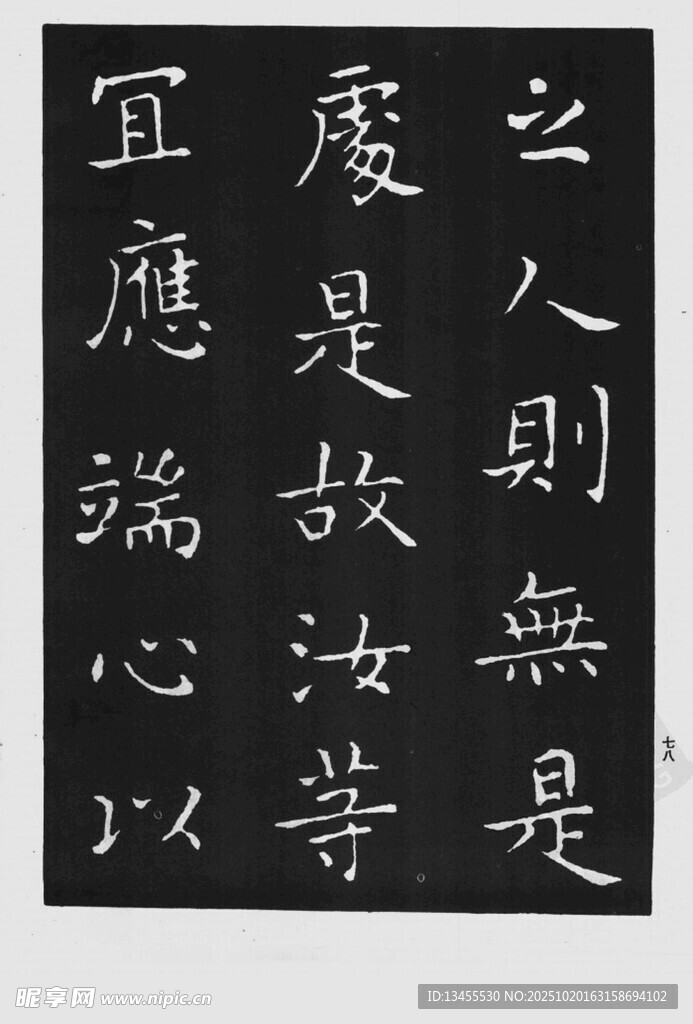 之人則無是
處是故汝等
宜應端心以
七八
昵享网 www.nipic.cn
ID:13455530 NO:20251020163158694102